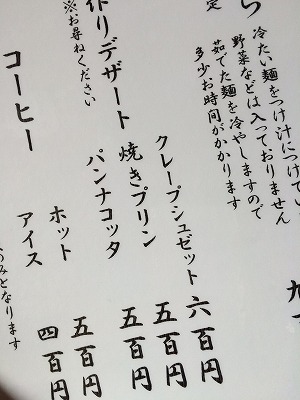 ら
定
冷たい麺をつけ汁につけてい
野菜などは入っておりません
茹でた麺を冷やしますので
多少お時間がかかります
九
作りデザート
※お尋ねください
クレープシュゼット 六百円
焼きプリン 五百円
パンナコッタ 五百円
コーヒー
ホット 五百円
アイス 四百円
のみとなります